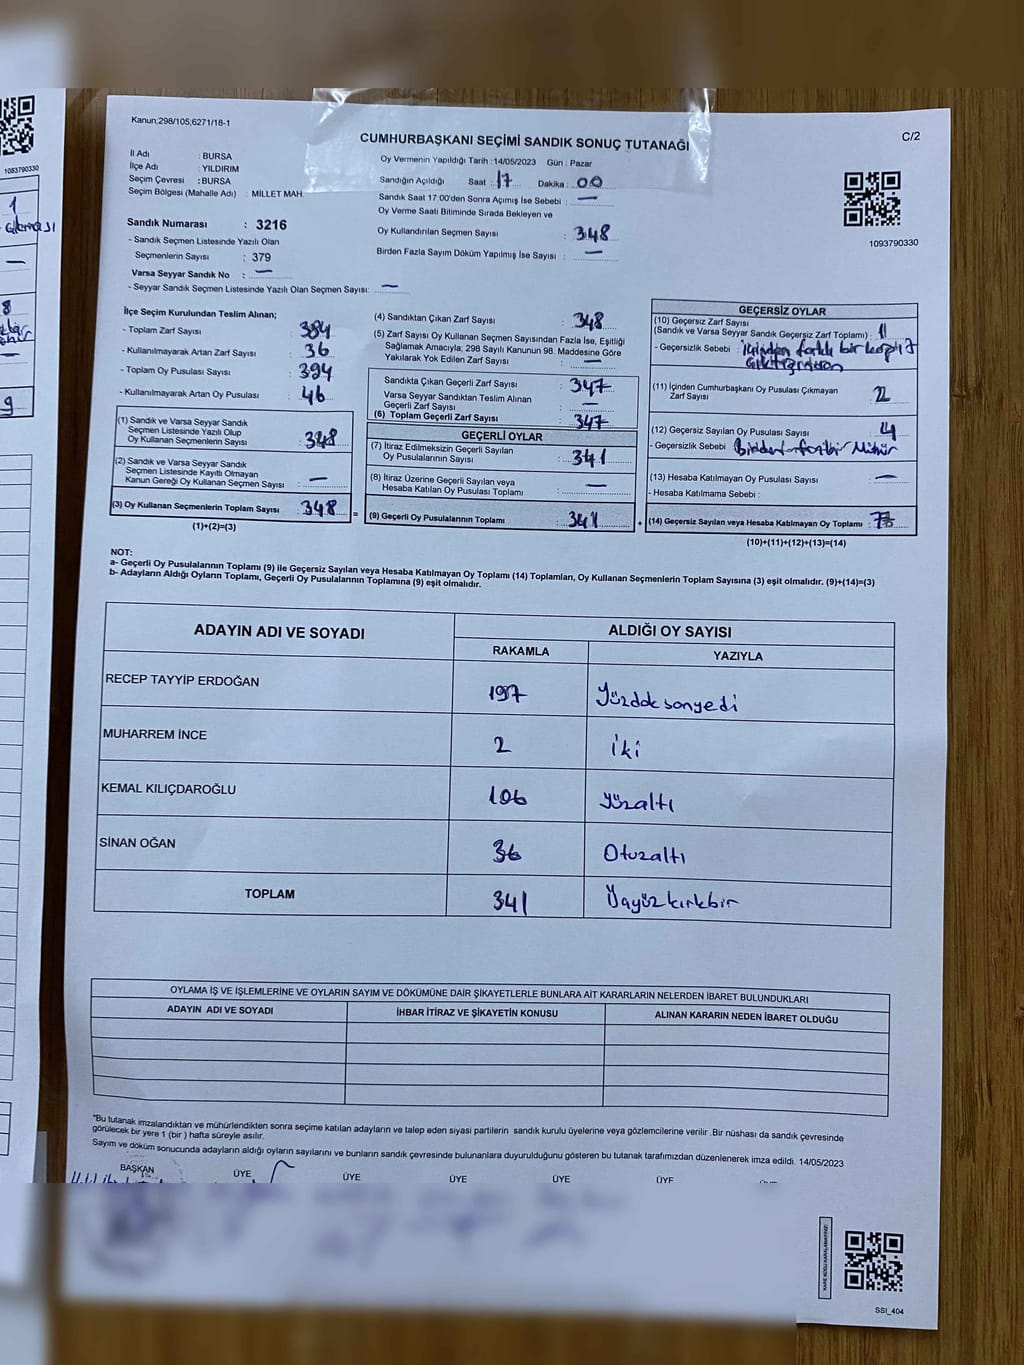 Kanun;298/105,6271/18-1
CUMHURBAŞKANI SEÇİMİ SANDIK SONUÇ TUTANAĞI
C/2
İl Adı : BURSA
İlçe Adı : YILDIRIM
Seçim Çevresi : BURSA
Seçim Bölgesi (Mahalle Adı) : MİLLET MAH.
Oy Vermenin Yapıldığı Tarih :14/05/2023 Gün : Pazar
Sandığın Açıldığı Saat : 17 Dakika : 00
Sandık Saat 17:00'den Sonra Açılmış İse Sebebi : —
Oy Verme Saati Bitiminde Sırada Bekleyen ve
Oy Kullandırılan Seçmen Sayısı : 348
Birden Fazla Sayım Döküm Yapılmış İse Sayısı : —
1093790330
Sandık Numarası : 3216
- Sandık Seçmen Listesinde Yazılı Olan
Seçmenlerin Sayısı : 379
Varsa Seyyar Sandık No : —
- Seyyar Sandık Seçmen Listesinde Yazılı Olan Seçmen Sayısı: —
İlçe Seçim Kurulundan Teslim Alınan;
- Toplam Zarf Sayısı : 384
- Kullanılmayarak Artan Zarf Sayısı : 36
- Toplam Oy Pusulası Sayısı : 394
- Kullanılmayarak Artan Oy Pusulası : 46
(1) Sandık ve Varsa Seyyar Sandık
Seçmen Listesinde Yazılı Olup
Oy Kullanan Seçmenlerin Sayısı : 348
(2) Sandık ve Varsa Seyyar Sandık
Seçmen Listesinde Kayıtlı Olmayan
Kanun Gereği Oy Kullanan Seçmen Sayısı : —
(3) Oy Kullanan Seçmenlerin Toplam Sayısı : 348
(1)+(2)=(3)
(4) Sandıktan Çıkan Zarf Sayısı : 348
(5) Zarf Sayısı Oy Kullanan Seçmen Sayısından Fazla İse, Eşitliği
Sağlamak Amacıyla, 298 Sayılı Kanunun 98. Maddesine Göre
Yakılarak Yok Edilen Zarf Sayısı : —
Sandıkta Çıkan Geçerli Zarf Sayısı : 347
Varsa Seyyar Sandıktan Teslim Alınan
Geçerli Zarf Sayısı : —
(6) Toplam Geçerli Zarf Sayısı : 347
GEÇERLİ OYLAR
(7) İtiraz Edilmeksizin Geçerli Sayılan
Oy Pusulalarının Sayısı : 341
(8) İtiraz Üzerine Geçerli Sayılan veya
Hesaba Katılan Oy Pusulası Toplamı : —
(9) Geçerli Oy Pusulalarının Toplamı : 341
GEÇERSİZ OYLAR
(10) Geçersiz Zarf Sayısı
(Sandık ve Varsa Seyyar Sandık Geçersiz Zarf Toplamı) : 1
- Geçersizlik Sebebi : içinden farklı bir
(11) İçinden Cumhurbaşkanı Oy Pusulası Çıkmayan
Zarf Sayısı : 2
(12) Geçersiz Sayılan Oy Pusulası Sayısı : 4
- Geçersizlik Sebebi : Birden fazla bir Mühür
(13) Hesaba Katılmayan Oy Pusulası Sayısı : —
- Hesaba Katılmama Sebebi :
(14) Geçersiz Sayılan veya Hesaba Katılmayan Oy Toplamı : 7
(10)+(11)+(12)+(13)=(14)
NOT:
a- Geçerli Oy Pusulalarının Toplamı (9) ile Geçersiz Sayılan veya Hesaba Katılmayan Oy Toplamı (14) Toplamları, Oy Kullanan Seçmenlerin Toplam Sayısına (3) eşit olmalıdır. (9)+(14)=(3)
b- Adayların Aldığı Oyların Toplamı, Geçerli Oy Pusulalarının Toplamına (9) eşit olmalıdır.
ADAYIN ADI VE SOYADI
ALDIĞI OY SAYISI
RAKAMLA YAZIYLA
RECEP TAYYİP ERDOĞAN 197 Yüzdoksanyedi
MUHARREM İNCE 2 iki
KEMAL KILIÇDAROĞLU 106 yüzaltı
SİNAN OĞAN 36 Otuzaltı
TOPLAM 341 Üçyüzkırkbir
OYLAMA İŞ VE İŞLEMLERİNE VE OYLARIN SAYIM VE DÖKÜMÜNE DAİR ŞİKAYETLERLE BUNLARA AİT KARARLARIN NELERDEN İBARET BULUNDUKLARI
ADAYIN ADI VE SOYADI İHBAR İTİRAZ VE ŞİKAYETİN KONUSU ALINAN KARARIN NEDEN İBARET OLDUĞU
"Bu tutanak imzalandıktan ve mühürlendikten sonra seçime katılan adayların ve talep eden siyasi partilerin sandık kurulu üyelerine veya gözlemcilerine verilir .Bir nüshası da sandık çevresinde
görülecek bir yere 1 (bir ) hafta süreyle asılır.
Sayım ve döküm sonucunda adayların aldığı oyların sayılarını ve bunların sandık çevresinde bulunanlara duyurulduğunu gösteren bu tutanak tarafımızdan düzenlenerek imza edildi. 14/05/2023
BAŞKAN ÜYE ÜYE ÜYE ÜYE ÜYE
SSI_404
1083790330